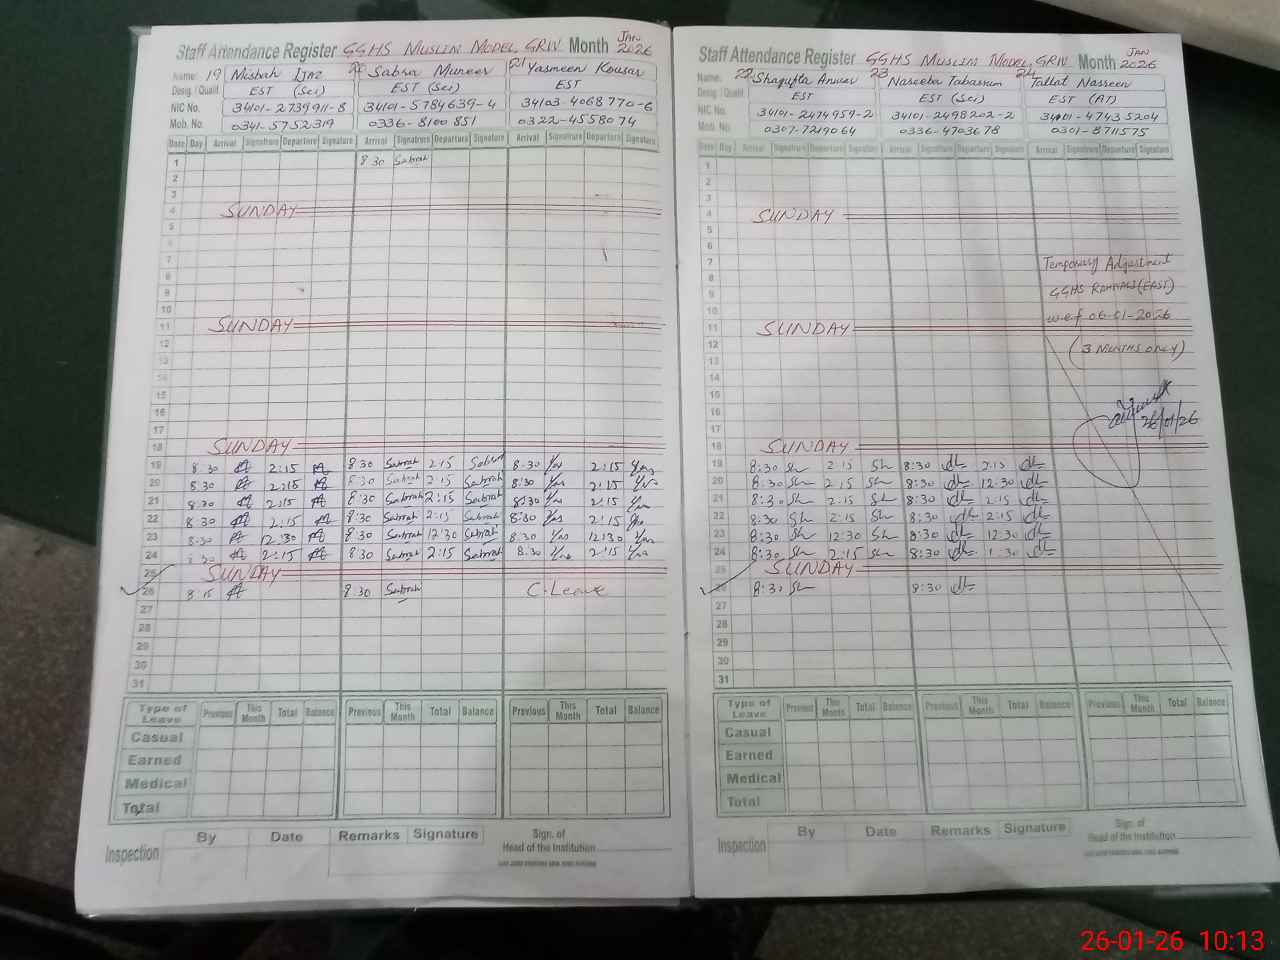 Staff Attendance Register GGHS MUSLIM MODEL GRW Month JAN 2026
Name: 19 Misbah Ijaz 20 Sabra Muneer 21 Yasmeen Kousar
Desig / Qualif EST (Sci) EST (Sci) EST
NIC No. 34101-2739911-8 34101-5784639-4 34103-4068770-6
Mob. No. 0341-5752319 0336-8100851 0322-4558074
Date Day Arrival Signature Departure Signature Arrival Signature Departure Signature Arrival Signature Departure Signature
1 8 30 Sabrah
2
3
4 SUNDAY
5
6
7
8
9
10
11 SUNDAY
12
13
14
15
16
17
18 SUNDAY
19 8 30 2:15 8 30 Sabrah 2:15 Sabrah 8:30 Yas 2:15 Yas
20 8:30 2:15 8:30 Sabrah 2:15 Sabrah 8:30 Yas 2:15 Yas
21 8:30 2:15 8:30 Sabrah 2:15 Sabrah 8:30 Yas 2:15 Yas
22 8:30 2:15 8:30 Sabrah 2:15 Sabrah 8:30 Yas 2:15 Yas
23 8:30 12:30 8:30 Sabrah 12:30 Sabrah 8:30 Yas 12:30 Yas
24 2:15 8:30 Sabrah 2:15 Sabrah 8:30 Yas 2:15 Yas
25 SUNDAY
26 8:15 8:30 Sabrah C.Leave
27
28
29
30
31
Type of Leave Previous This Month Total Balance Previous This Month Total Balance Previous This Month Total Balance
Casual
Earned
Medical
Total
Inspection By Date Remarks Signature Sign. of Head of the Institution
Staff Attendance Register GGHS MUSLIM MODEL GRW Month JAN 2026
Name. 22 Shagufta Anwar 23 Naseeba Tabassum 24 Tallat Nasreen
Desig / Qualif EST EST (Sci) EST (AT)
NIC No. 34101-2474959-2 34101-2498202-2 34101-47435204
Mob. No. 0307-7219064 0336-4703678 0301-8711575
Date Day Arrival Signature Departure Signature Arrival Signature Departure Signature Arrival Signature Departure Signature
1
2
3
4 SUNDAY
5
6
7 Temporary Adjustment
8
9 GGHS RAHWALI (EAST)
10 w.e.f 06-01-2026
11 SUNDAY
12 (3 MONTHS ONLY)
13
14
15
16 26/01/26
17
18 SUNDAY
19 8:30 Sh 2:15 Sh 8:30 2:15
20 8:30 Sh 2:15 Sh 8:30 12:30
21 8:30 Sh 2:15 Sh 8:30 2:15
22 8:30 Sh 2:15 Sh 8:30 2:15
23 8:30 Sh 12:30 Sh 8:30 12:30
24 8:30 Sh 2:15 Sh 8:30
25 SUNDAY
26 8:30 Sh 8:30
27
28
29
30
31
Type of Leave Previous This Month Total Balance Previous This Month Total Balance Previous This Month Total Balance
Casual
Earned
Medical
Total
Inspection By Date Remarks Signature Sign. of Head of the Institution
26-01-26 10:13